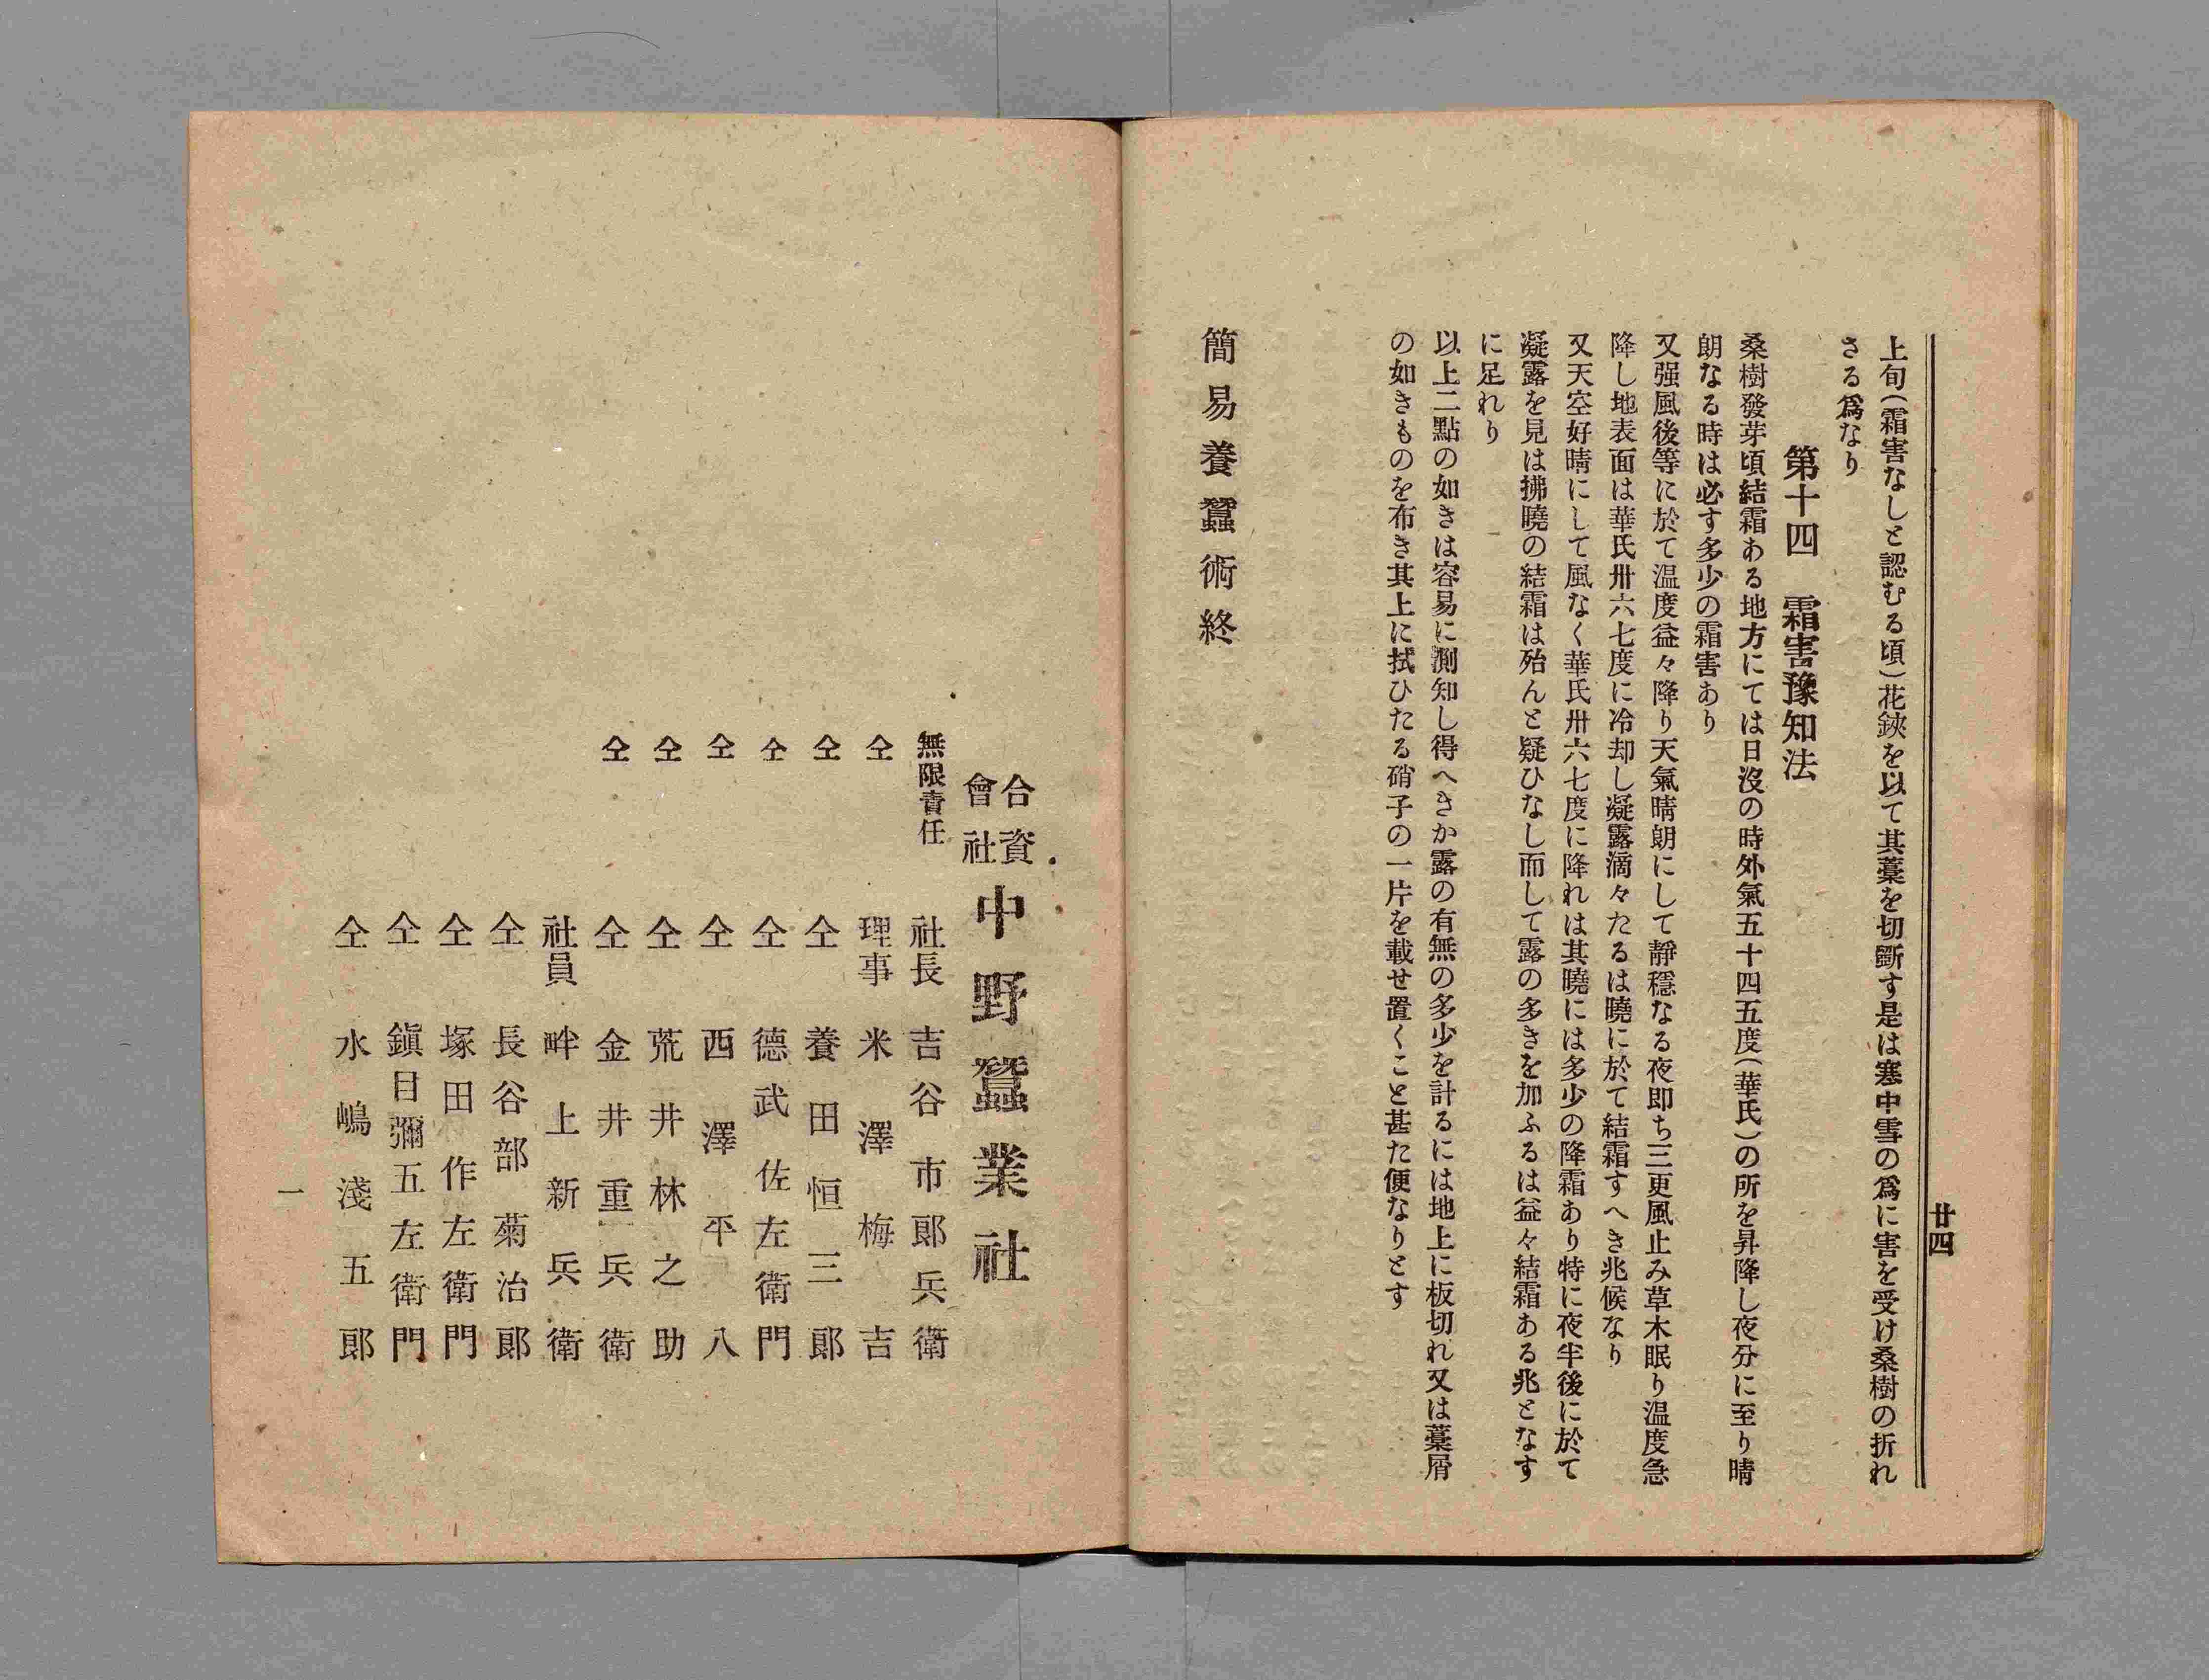 廿四
上旬(霜害なしと認むる頃)花鋏を以て其藁を切斷す是は寒中雪の爲に害を受け桑樹の折れ
さる爲なり
第十四　霜害豫知法
桑樹發芽頃結霜ある地方にては日沒の時外氣五十四五度(華氏)の所を昇降し夜分に至り晴
朗なる時は必す多少の霜害あり
又强風後等に於て温度益々降り天氣晴朗にして靜穩なる夜即ち三更風止み草木眠り温度急
降し地表面は華氏卅六七度に冷却し凝露滴々たるは曉に於て結霜すへき兆候なり
又天空好晴にして風なく華氏卅六七度に降れは其曉には多少の降霜あり特に夜半後に於て
凝露を見は拂曉の結霜は殆んと疑ひなし而して露の多きを加ふるは益々結霜ある兆となす
に足れり
以上二點の如きは容易に測知し得へきか露の有無の多少を計るには地上に板切れ又は藁屑
の如きものを布き其上に拭ひたる硝子の一片を載せ置くこと甚た便なりとす
簡易養蠶術終
合資會社　中野蠶業社
無限責任　社長　吉谷市郎兵衛
仝　理事　米澤梅吉
仝　仝　養田恒三郎
仝　仝　德武佐左衛門
仝　仝　西澤平八
仝　仝　荒井林之助
仝　仝　金井重兵衛
社員　畔上新兵衛
仝　長谷部菊治郎
仝　塚田作左衛門
仝　鎭目彌五左衛門
仝　水嶋淺五郎
一